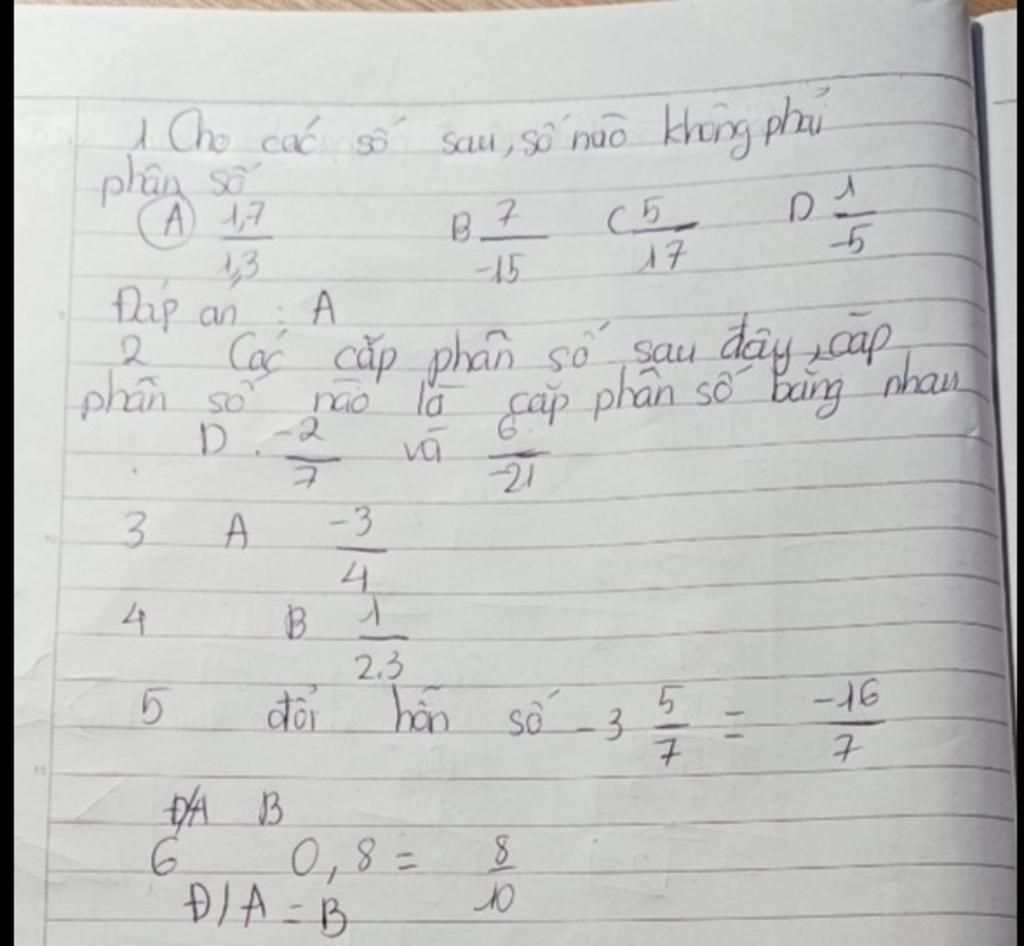 1 Cho các số sau, số nào không phải
phân số
A 1,7/1,3 B 7/-15 C 5/17 D 1/-5
Đáp án : A
2 Các cặp phân số sau đây, cặp
phân số nào là cặp phân số bằng nhau
D. -2/7 và 6/-21
3 A -3/4
4 B 1/2.3
5 đổi hỗn số -3 5/7 = -16/7
Đ/A B
6 0,8 = 8/10
Đ/A = B